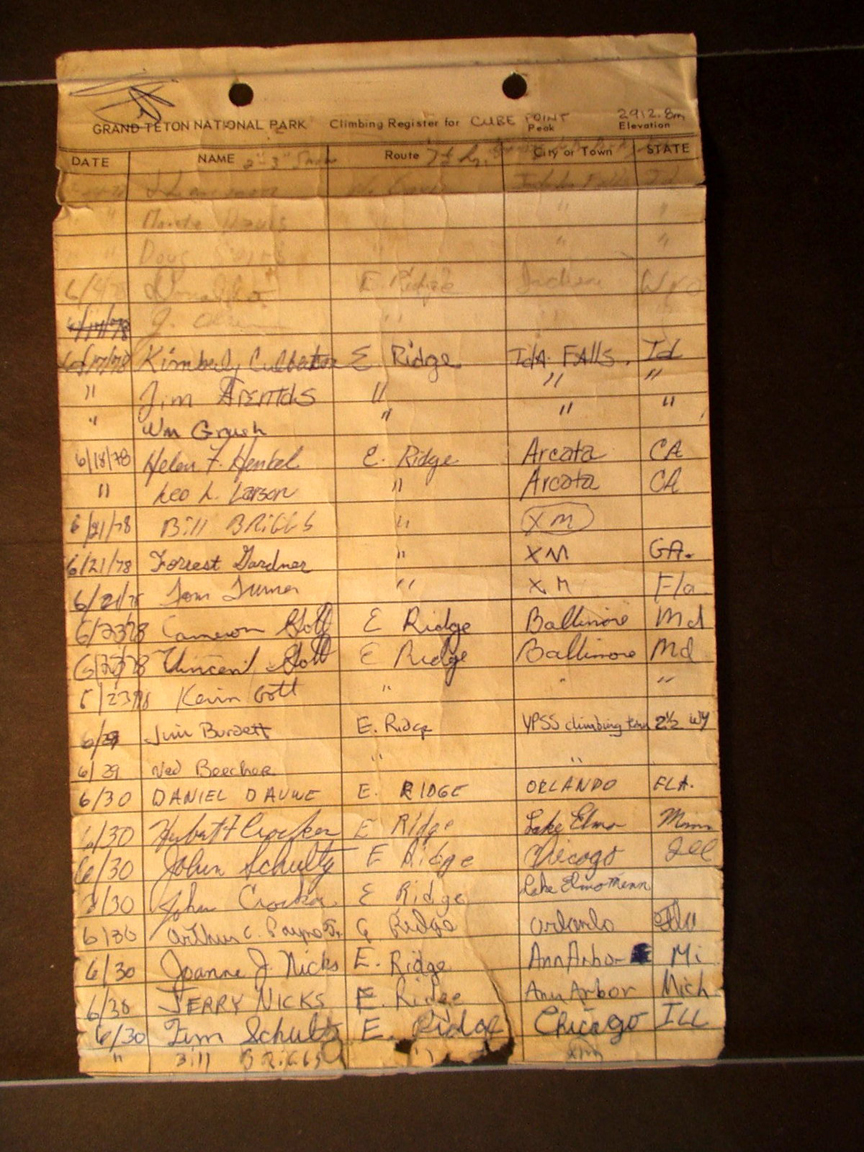 GRAND TETON NATIONAL PARK Climbing Register for CUBE POINT Peak 2912.8m Elevation
DATE NAME Route City or Town STATE
Idaho Falls Id
" " "
Doug " " "
6/4/78 E. Ridge Jackson Wyo
6/17/78 J. " "
6/17/78 Kimberly E Ridge IdA FALLS. Id
" Jim Arentds " " "
" Wm " " "
6/18/78 Helen F. Henkel E. Ridge Arcata CA
" Leo L. Larson " Arcata CA
6/21/78 Bill BRIGGS " XM
6/21/78 Forrest Gardner " XM GA.
6/21/78 Tom Turner " XM Fla.
6/23/78 Cameron Gott E Ridge Baltimore Md
6/23/78 Vincent Gott E Ridge Baltimore Md
6/23/78 Kevin Gott " " "
6/29 Jim Burdett E. Ridge VPSS climbing 2½ WY
6/29 Ned Beecher " "
6/30 DANIEL DAUWE E. RIDGE ORLANDO FLA.
6/30 Hubert F Crocker E Ridge Lake Elmo Minn
6/30 John Schultz E Ridge Chicago Ill
6/30 John Crocker E Ridge Lake Elmo Minn
6/30 Arthur C. Payne Jr. E Ridge Orlando Fla
6/30 Joanne J. Nicks E. Ridge Ann Arbor Mi
6/30 JERRY NICKS E. Ridge Ann Arbor Mich
6/30 Tim Schultz E. Ridge Chicago ILL
" Bill BRIGGS " XM